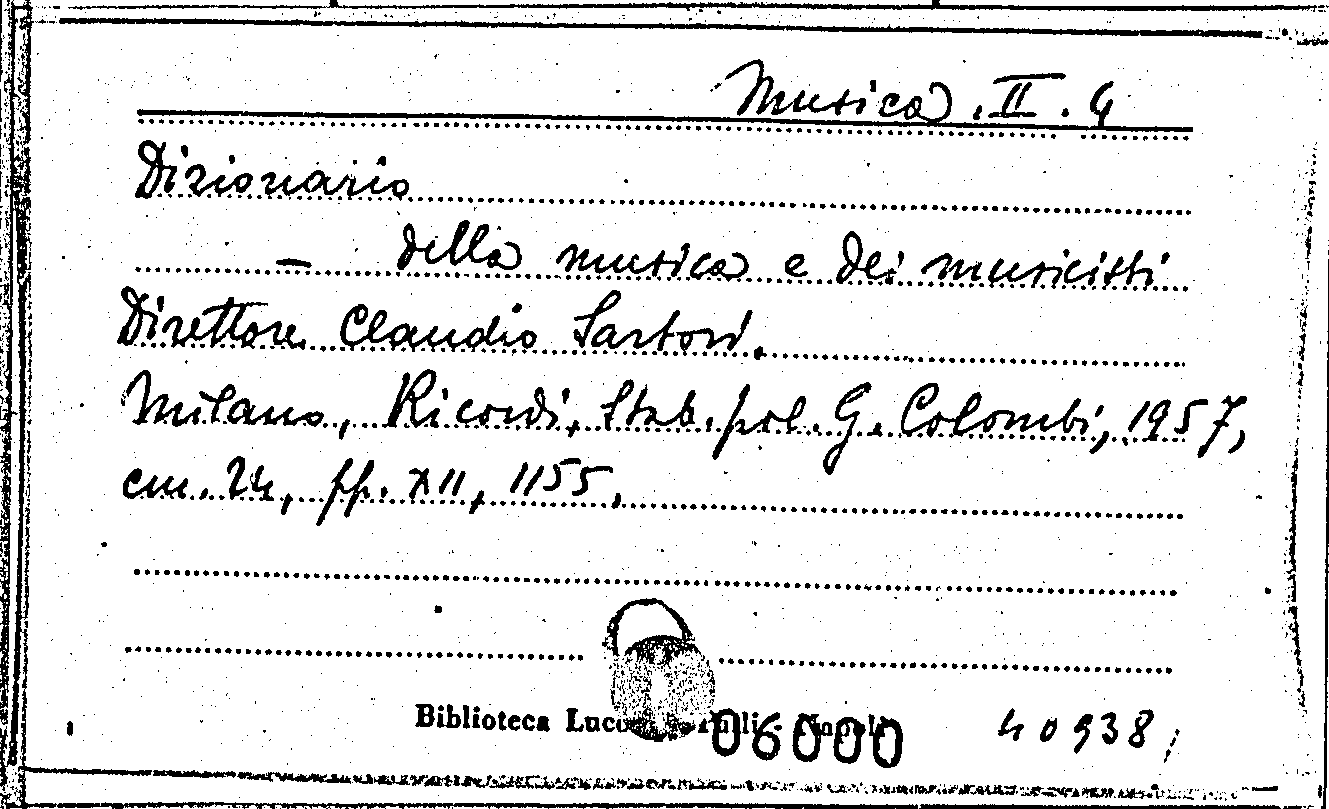 Musica. II. 4
Dizionario
— della musica e dei musicisti
Direttore Claudio Sartori.
Milano, Ricordi, Stab. pol. G. Colombi, 1957,
cm. 24, pp. XII, 1155.
Biblioteca
06000
40938